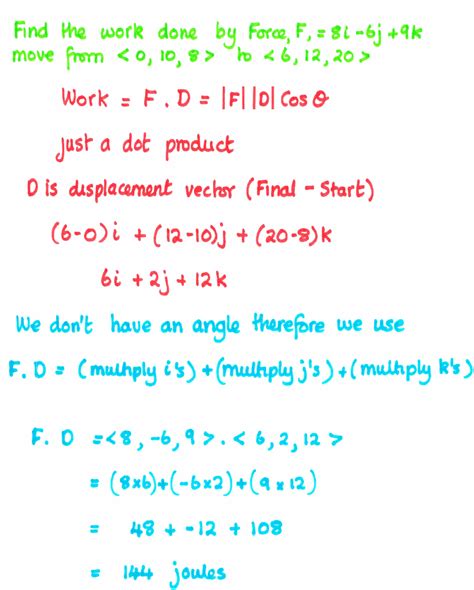 Find the work done by Force, F, = 8i - 6j + 9k
move from < 0, 10, 8 > to < 6, 12, 20 >
Work = F . D = |F| |D| Cos θ
just a dot product
D is displacement vector (Final - Start)
(6-0)i + (12-10)j + (20-8)k
6i + 2j + 12k
We don't have an angle therefore we use
F. D = (multiply i's) + (multiply j's) + (multiply k's)
F. D = <8, -6, 9 > . < 6, 2, 12 >
= (8x6)+(-6x2)+(9 x 12)
= 48 + -12 + 108
= 144 joules